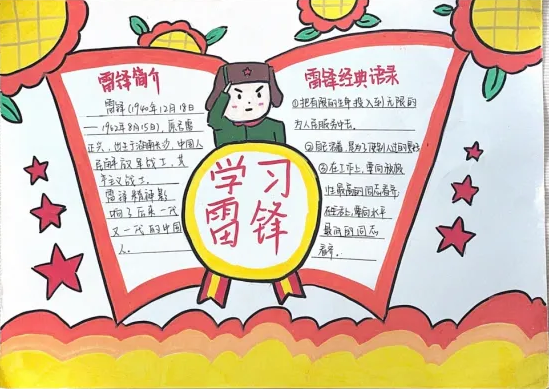 雷锋简介
雷锋(1940年12月18日
——1962年8月15日),原名雷
正兴,出生于湖南长沙,中国人
民解放军战士,共
产主义战士。
雷锋精神影
响了后来一代
又一代的中国
人。
学习
雷锋
雷锋经典语录
①把有限的生年投入到无限的
为人民服务中去。
②自己活着,是为了
③在工作上,要向
性最高的同志看齐,
在生活上,要向水平
最低的同志
看齐。